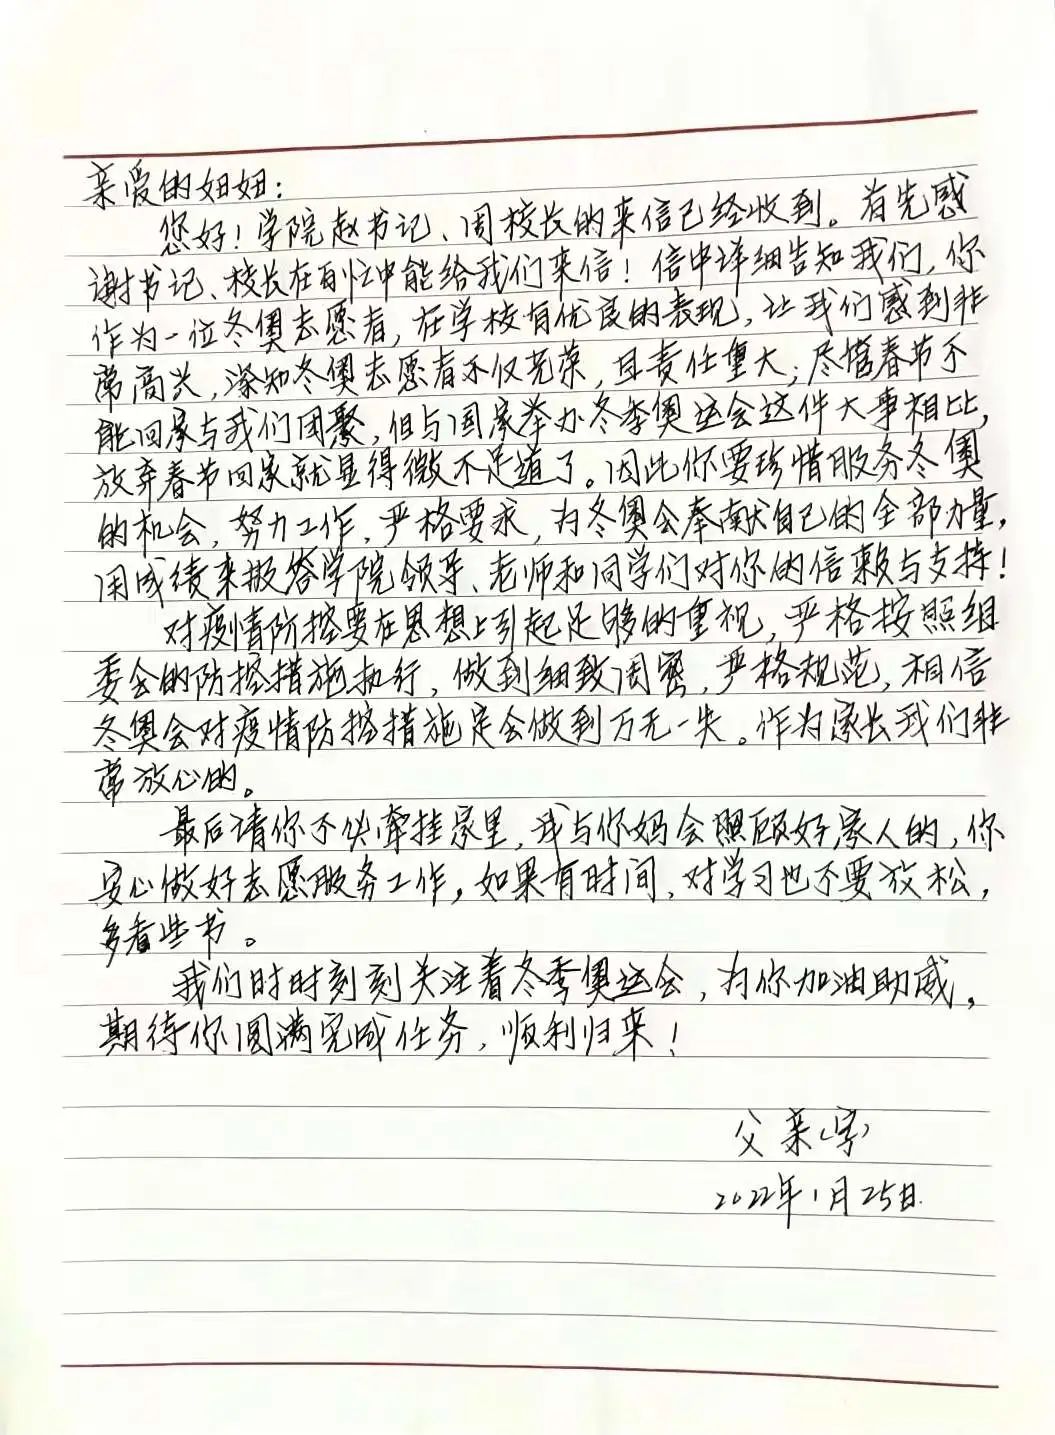 亲爱的妞妞：
您好！学院赵书记、周校长的来信已经收到。首先感
谢书记、校长在百忙中能给我们来信！信中详细告知我们，你
作为一位冬奥志愿者，在学校有优良的表现，让我们感到非
常高兴，深知冬奥志愿者不仅光荣，且责任重大；尽管春节不
能回家与我们团聚，但与国家举办冬季奥运会这件大事相比，
放弃春节回家就显得微不足道了。因此你要珍惜服务冬奥
的机会，努力工作，严格要求，为冬奥会奉献自己的全部力量，
用成绩来报答学院领导、老师和同学们对你的信赖与支持！
对疫情防控要在思想上引起足够的重视，严格按照组
委会的防控措施执行，做到细致周密，严格规范，相信
冬奥会对疫情防控措施定会做到万无一失。作为家长我们非
常放心的。
最后请你不必牵挂家里，我与你妈会照顾好家人的，你
安心做好志愿服务工作，如果有时间，对学习也不要放松，
多看些书。
我们时时刻刻关注着冬季奥运会，为你加油助威，
期待你圆满完成任务，顺利归来！
父亲（字）
2022年1月25日